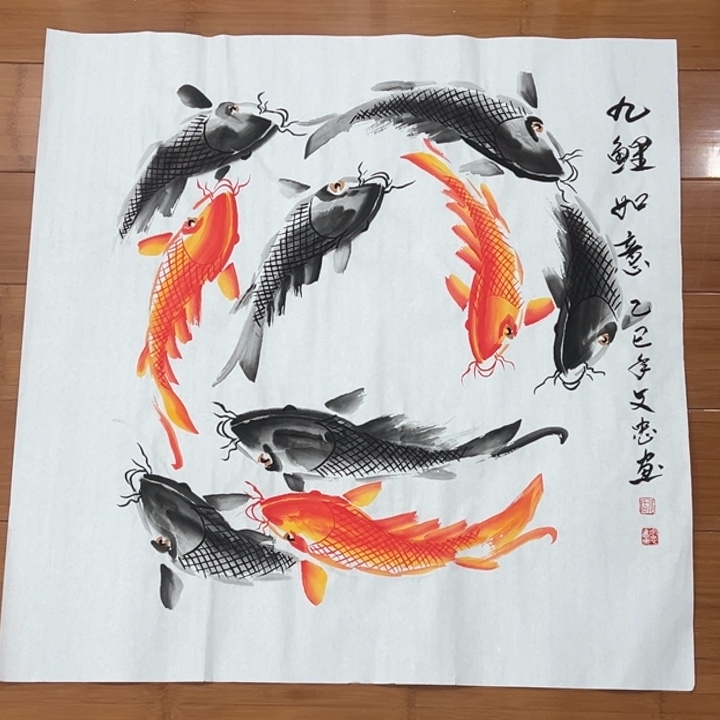 九鲤如意
乙巳年文忠画